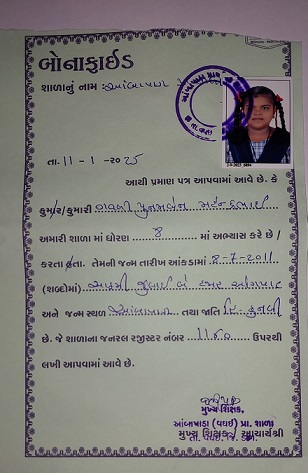 બોનાફાઈડ
શાળાનું નામ :
તા. 11 - 1 -2025
આથી પ્રમાણ પત્ર આપવામાં આવે છે. કે
કુમાર/કુમારી
અમારી શાળા માં ધોરણ 8 માં અભ્યાસ કરે છે /
કરતા હતા. તેમની જન્મ તારીખ આંકડામાં 8-7-2011
(શબ્દોમાં) આઠમી જુલાઈ બે હજાર અગિયાર
અને જન્મ સ્થળ તથા જાતિ હિ. કુનબી
છે. જે શાળાના જનરલ રજીસ્ટર નંબર 1160 ઉપરથી
લખી આપવામાં આવે છે.
મુખ્ય શિક્ષક,
આંબાપાડા (વઘઈ) પ્રા. શાળા
મુખ્ય શિક્ષક/ આચાર્યશ્રી